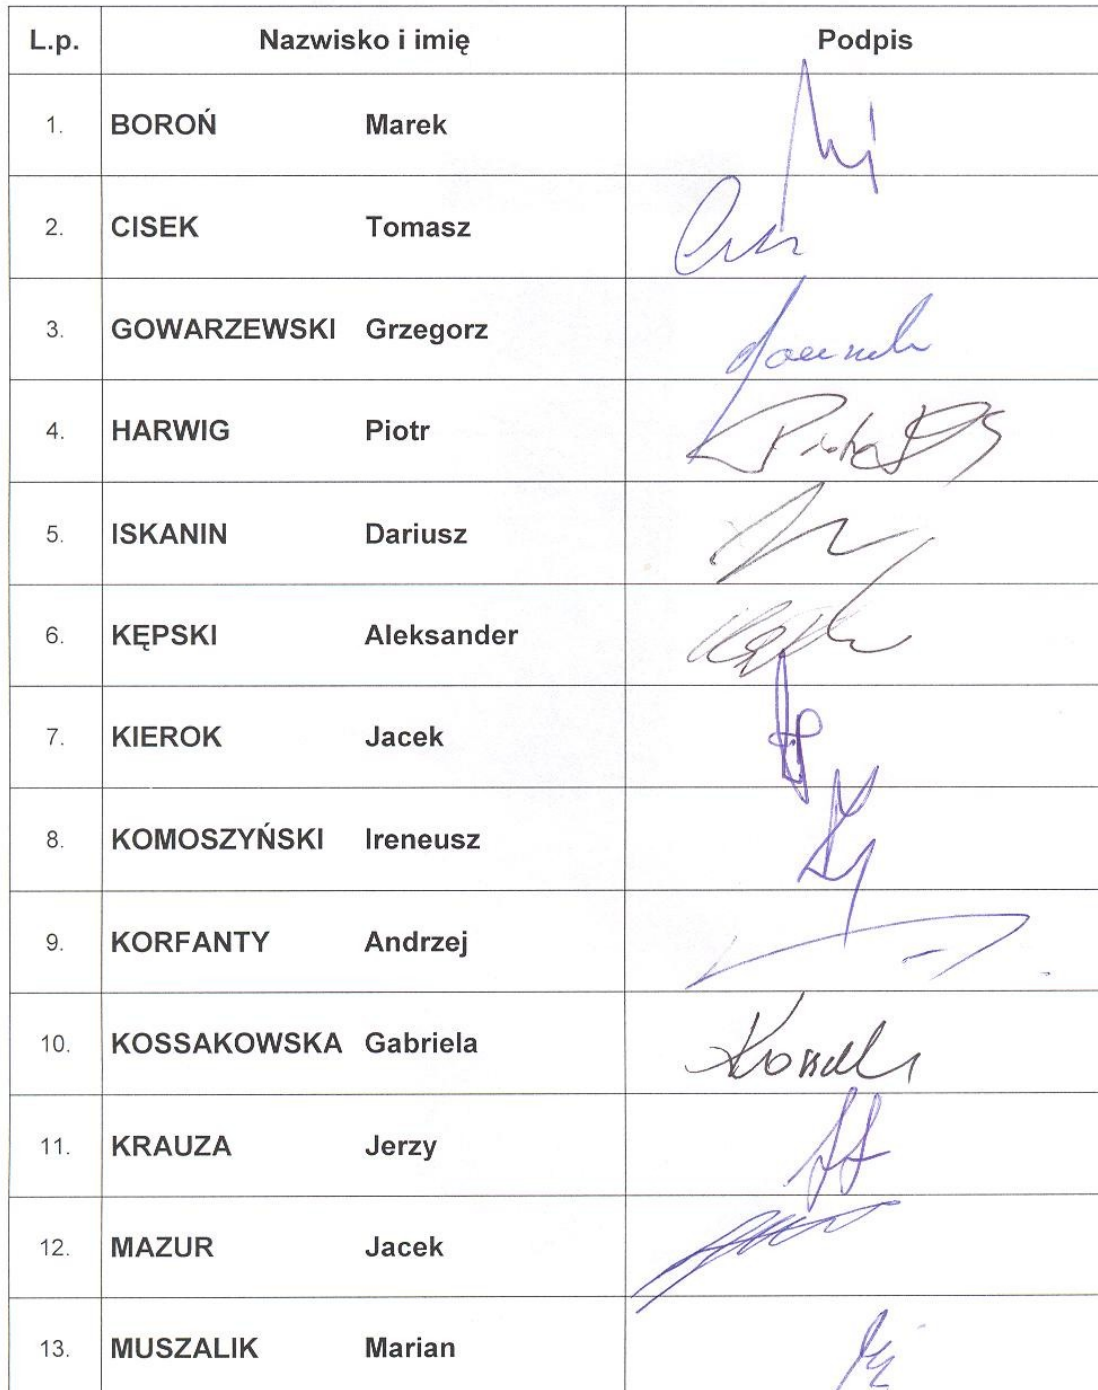 L.p. Nazwisko i imię Podpis
1. BOROŃ Marek
2. CISEK Tomasz
3. GOWARZEWSKI Grzegorz
4. HARWIG Piotr
5. ISKANIN Dariusz
6. KĘPSKI Aleksander
7. KIEROK Jacek
8. KOMOSZYŃSKI Ireneusz
9. KORFANTY Andrzej
10. KOSSAKOWSKA Gabriela
11. KRAUZA Jerzy
12. MAZUR Jacek
13. MUSZALIK Marian